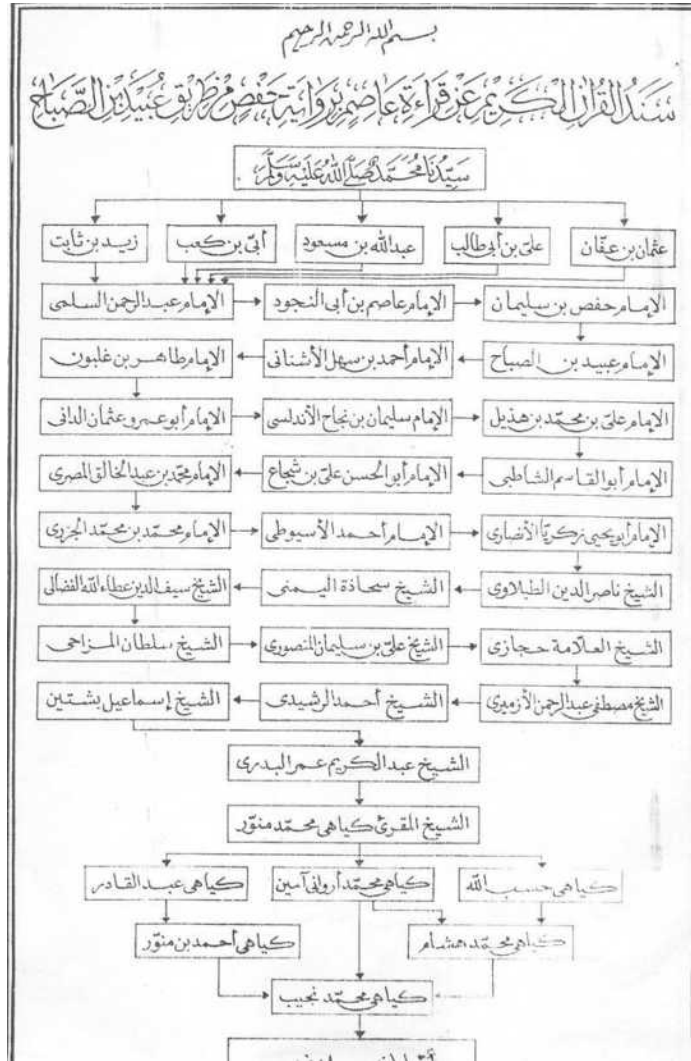 بسم الله الرحمن الرحيم
سَنَدُ القُرْآنِ الْكَرِيْمِ عَنْ قِرَاءَةِ عَاصِمٍ بِرِوَايَةِ حَفْصٍ مِنْ طَرِيْقِ عُبَيْدِ بْنِ الصَّبَاحِ
سَيِّدُنَا مُحَمَّدٌ صَلَّى اللهُ عَلَيْهِ وَسَلَّمَ
عثمان بن عفّان علىّ بن أبى طالب عبد الله بن مسعود أبىّ بن كعب زيد بن ثابت
الإمام حفص بن سليمان الإمام عاصم بن أبى النجود الإمام عبد الرحمن السلمى
الإمام عبيد بن الصباح الإمام أحمد بن سهل الأشنانى الإمام طاهر بن غلبون
الإمام علىّ بن محمّد بن هذيل الإمام سليمان بن نجاح الأندلسى الإمام أبو عمرو عثمان الدانى
الإمام أبو القاسم الشاطبى الإمام أبو الحسن علىّ بن شجاع الإمام محمّد بن عبد الخالق المصرى
الإمام أبو يحيى زكريّا الأنصارى الإمام أحمد الأسيوطى الإمام محمّد بن محمّد الجزرى
الشيخ ناصر الدين الطبلاوى الشيخ سحاذة اليمنى الشيخ سيف الدين عطاء الله الفضالى
الشيخ العلّامة حجازى الشيخ علىّ بن سليمان المنصورى الشيخ سلطان المزاحى
الشيخ مصطفى عبد الرحمن الأزميرى الشيخ أحمد الرشيدى الشيخ إسماعيل بشتين
الشيخ عبد الكريم عمر البدرى
الشيخ المقرئ كياهى محمّد منوّر
كياهى حسب الله كياهى محمّد أروانى آمين كياهى عبد القادر
كياهى محمّد هشام كياهى أحمد بن منوّر
كياهى محمّد نجيب